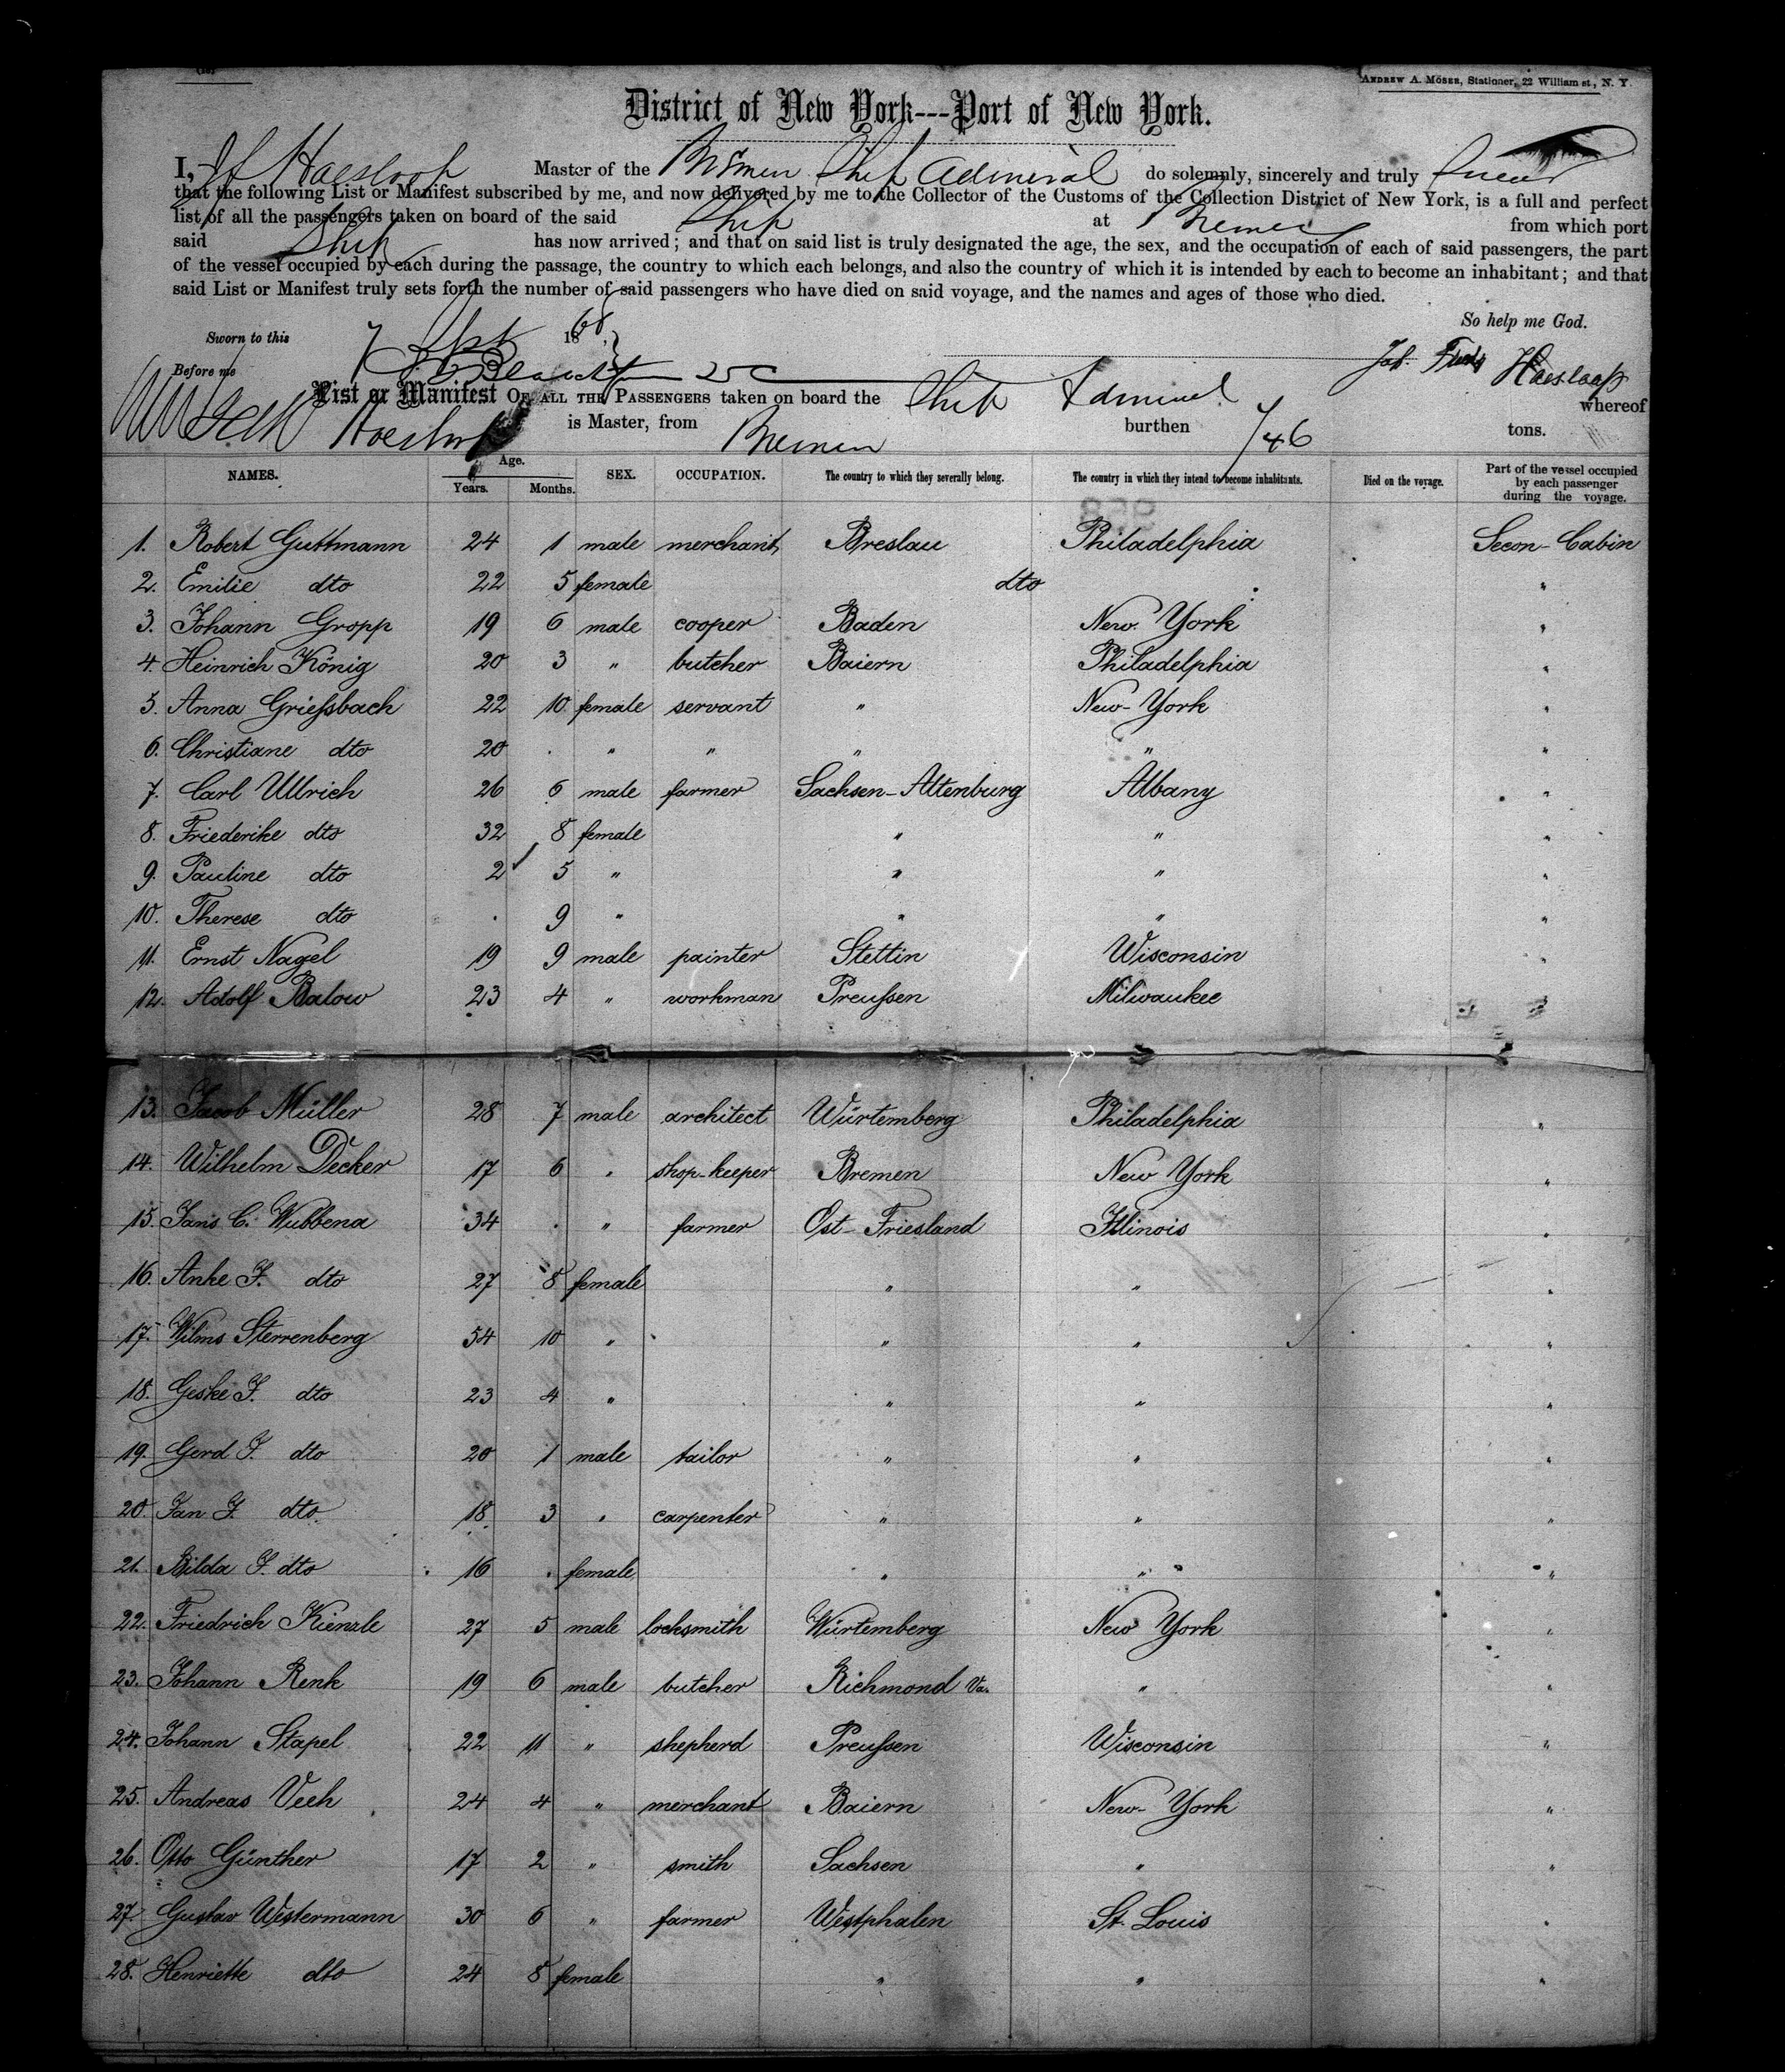 ANDREW A. MÖSER, Stationer, 22 William st., N. Y.
District of New York---Port of New York.
I, Haesloop Master of the Bremen Ship Admiral do solemnly, sincerely and truly Swear
that the following List or Manifest subscribed by me, and now delivered by me to the Collector of the Customs of the Collection District of New York, is a full and perfect
list of all the passengers taken on board of the said Ship at Bremen from which port
said Ship has now arrived; and that on said list is truly designated the age, the sex, and the occupation of each of said passengers, the part
of the vessel occupied by each during the passage, the country to which each belongs, and also the country of which it is intended by each to become an inhabitant; and that
said List or Manifest truly sets forth the number of said passengers who have died on said voyage, and the names and ages of those who died.
So help me God.
Sworn to this 7 Sept 1868
Before me
Joh. Haesloop
List or Manifest OF ALL THE PASSENGERS taken on board the Ship Admiral whereof
Haesloop is Master, from Bremen burthen 746 tons.
NAMES. Age. Years. Months. SEX. OCCUPATION. The country to which they severally belong. The country in which they intend to become inhabitants. Died on the voyage. Part of the vessel occupied by each passenger during the voyage.
1. Robert Guttmann 24 1 male merchant Breslau Philadelphia Secon-Cabin
2. Emilie dto 22 5 female dto "
3. Johann Gropp 19 6 male cooper Baden New York "
4. Heinrich König 20 3 " butcher Baiern Philadelphia "
5. Anna Grießbach 22 10 female servant " New-York "
6. Christiane dto 20 . " " " " "
7. Carl Ullrich 26 6 male farmer Sachsen-Altenburg Albany "
8. Friederike dto 32 8 female " " "
9. Pauline dto 2 5 " " " "
10. Therese dto . 9 " " " "
11. Ernst Nagel 19 9 male painter Stettin Wisconsin "
12. Adolf Balow 23 4 " workman Preußen Milwaukee "
13. Jacob Müller 28 7 male architect Würtemberg Philadelphia "
14. Wilhelm Decker 17 6 " shop-keeper Bremen New York "
15. Jans C. Wubbena 34 . " farmer Ost-Friesland Illinois "
16. Anke J. dto 27 8 female " " "
17. Wilms Sterrenberg 54 10 " " " "
18. Geske J. dto 23 4 " " " "
19. Gerd J. dto 20 1 male tailor " " "
20. Jan J. dto 18 3 " carpenter " " "
21. Bilda J. dto 16 . female " " "
22. Friedrich Kienzle 27 5 male locksmith Würtemberg New York "
23. Johann Renk 19 6 male butcher Richmond Va. " "
24. Johann Stapel 22 11 " shepherd Preußen Wisconsin "
25. Andreas Veeh 24 4 " merchant Baiern New-York "
26. Otto Günther 17 2 " smith Sachsen " "
27. Gustav Westermann 30 6 " farmer Westphalen St. Louis "
28. Henriette dto 24 8 female " " "